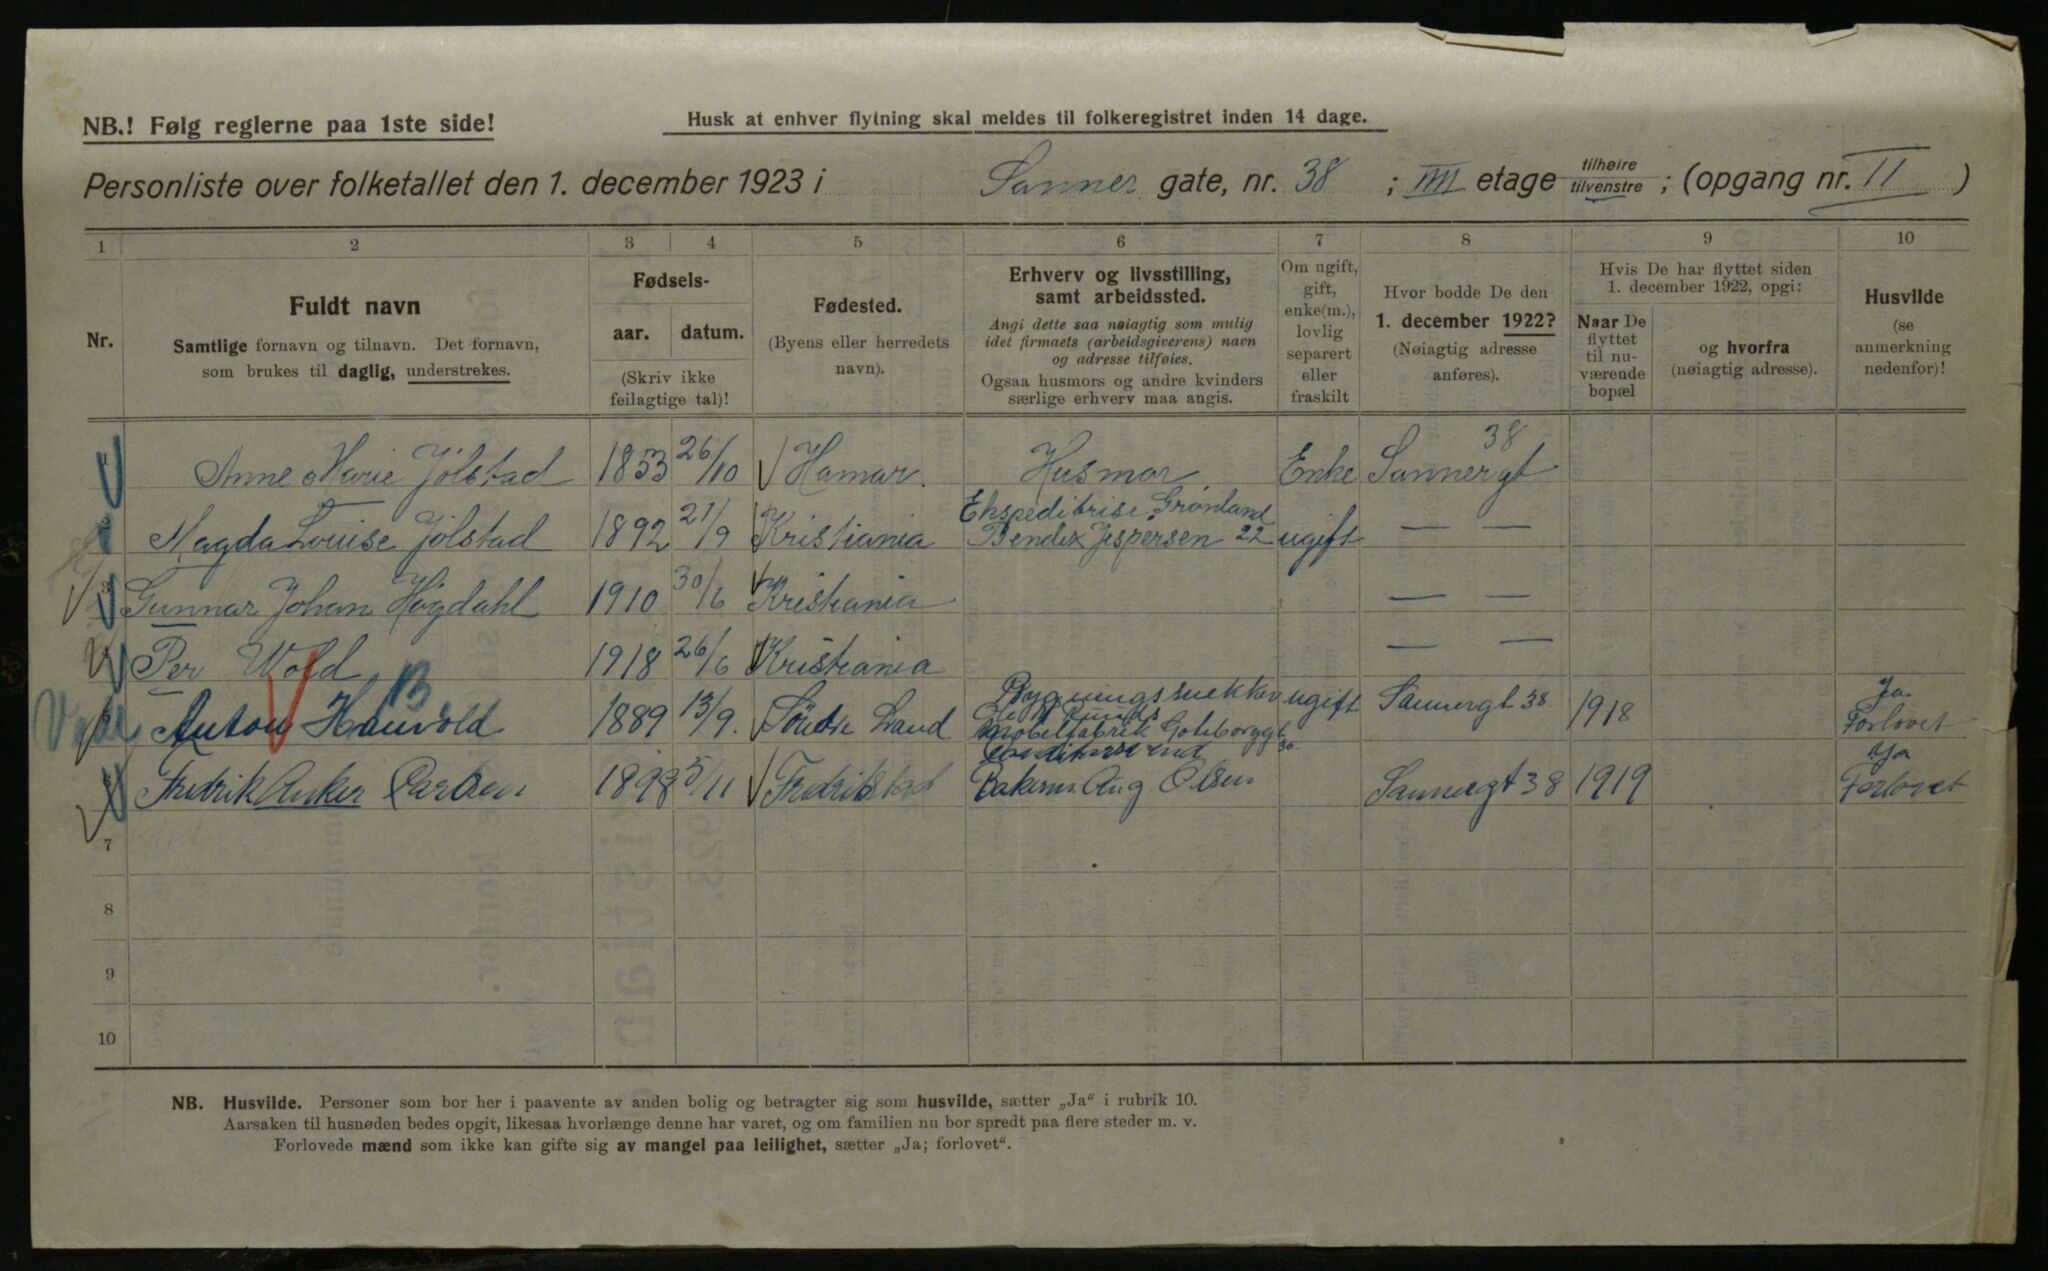 NB.! Følg reglerne paa 1ste side!
Husk at enhver flytning skal meldes til folkeregistret inden 14 dage.
Personliste over folketallet den 1. december 1923 i Sanner gate, nr. 38 ; IIII etage tilhøire tilvenstre ; (opgang nr. II )
1 2 3 4 5 6 7 8 9 10
Nr.
Fuldt navn
Samtlige fornavn og tilnavn. Det fornavn,
som brukes til daglig, understrekes.
Fødsels-
aar. datum.
(Skriv ikke
feilagtige tal)!
Fødested.
(Byens eller herredets
navn).
Erhverv og livsstilling,
samt arbeidssted.
Angi dette saa nøiagtig som mulig
idet firmaets (arbeidsgiverens) navn
og adresse tilføies.
Ogsaa husmors og andre kvinders
særlige erhverv maa angis.
Om ugift,
gift,
enke(m.),
lovlig
separert
eller
fraskilt
Hvor bodde De den
1. december 1922?
(Nøiagtig adresse
anføres).
Hvis De har flyttet siden
1. december 1922, opgi:
Naar De
flyttet
til nu-
værende
bopæl
og hvorfra
(nøiagtig adresse).
Husvilde
(se
anmerkning
nedenfor)!
Anne Marie Jölstad 1853 26/10 Hamar. Husmor Enke Sannergt 38
Magda Louise Jölstad 1892 21/9 Kristiania Ekspeditrise Grønland Bendix Jespersen 22 ugift — —
Gunnar Johan Högdahl 1910 30/6 Kristiania — —
Per Wold 1918 26/6 Kristiania — —
Anton Hauvold 1889 13/9. Söndre Land Bygningssnekker Möbelfabrik Goteborggt 30. ugift Sannergt 38 1918 Ja Forlovet
Fredrik Anker Carlsen 1898 5/11 Fredrikstad Bakerm. Aug Olsen Sannergt 38 1919 Ja Forlovet
7
8
9
10
NB. Husvilde. Personer som bor her i paavente av anden bolig og betragter sig som husvilde, sætter „Ja“ i rubrik 10.
Aarsaken til husnøden bedes opgit, likesaa hvorlænge denne har varet, og om familien nu bor spredt paa flere steder m. v.
Forlovede mænd som ikke kan gifte sig av mangel paa leilighet, sætter „Ja; forlovet“.